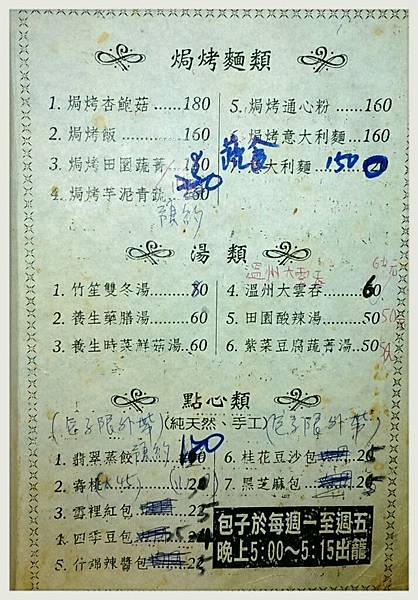 焗烤麵類
1. 焗烤杏鮑菇......180
2. 焗烤飯...........160
3. 焗烤田園蔬菁
4. 焗烤芋泥青蔬
預約
5. 焗烤通心粉......160
焗烤意大利麵...160
蔬食 大利麵 150
湯類
溫州大雲吞
1. 竹笙雙冬湯......80
2. 養生藥膳湯......60
3. 養生時菜鮮菇湯..60
4. 溫州大雲吞......60
5. 田園酸辣湯......50
6. 紫菜豆腐蔬菁湯..50
點心類
(純天然、手工)
(包子限外帶) (包子限外帶)
1. 翡翠蒸餃 預約
3. 雪裡紅包
4. 四季豆包
5. 什錦辣醬包
6. 桂花豆沙包
7. 黑芝麻包
包子於每週一至週五
晚上5:00～5:15出籠